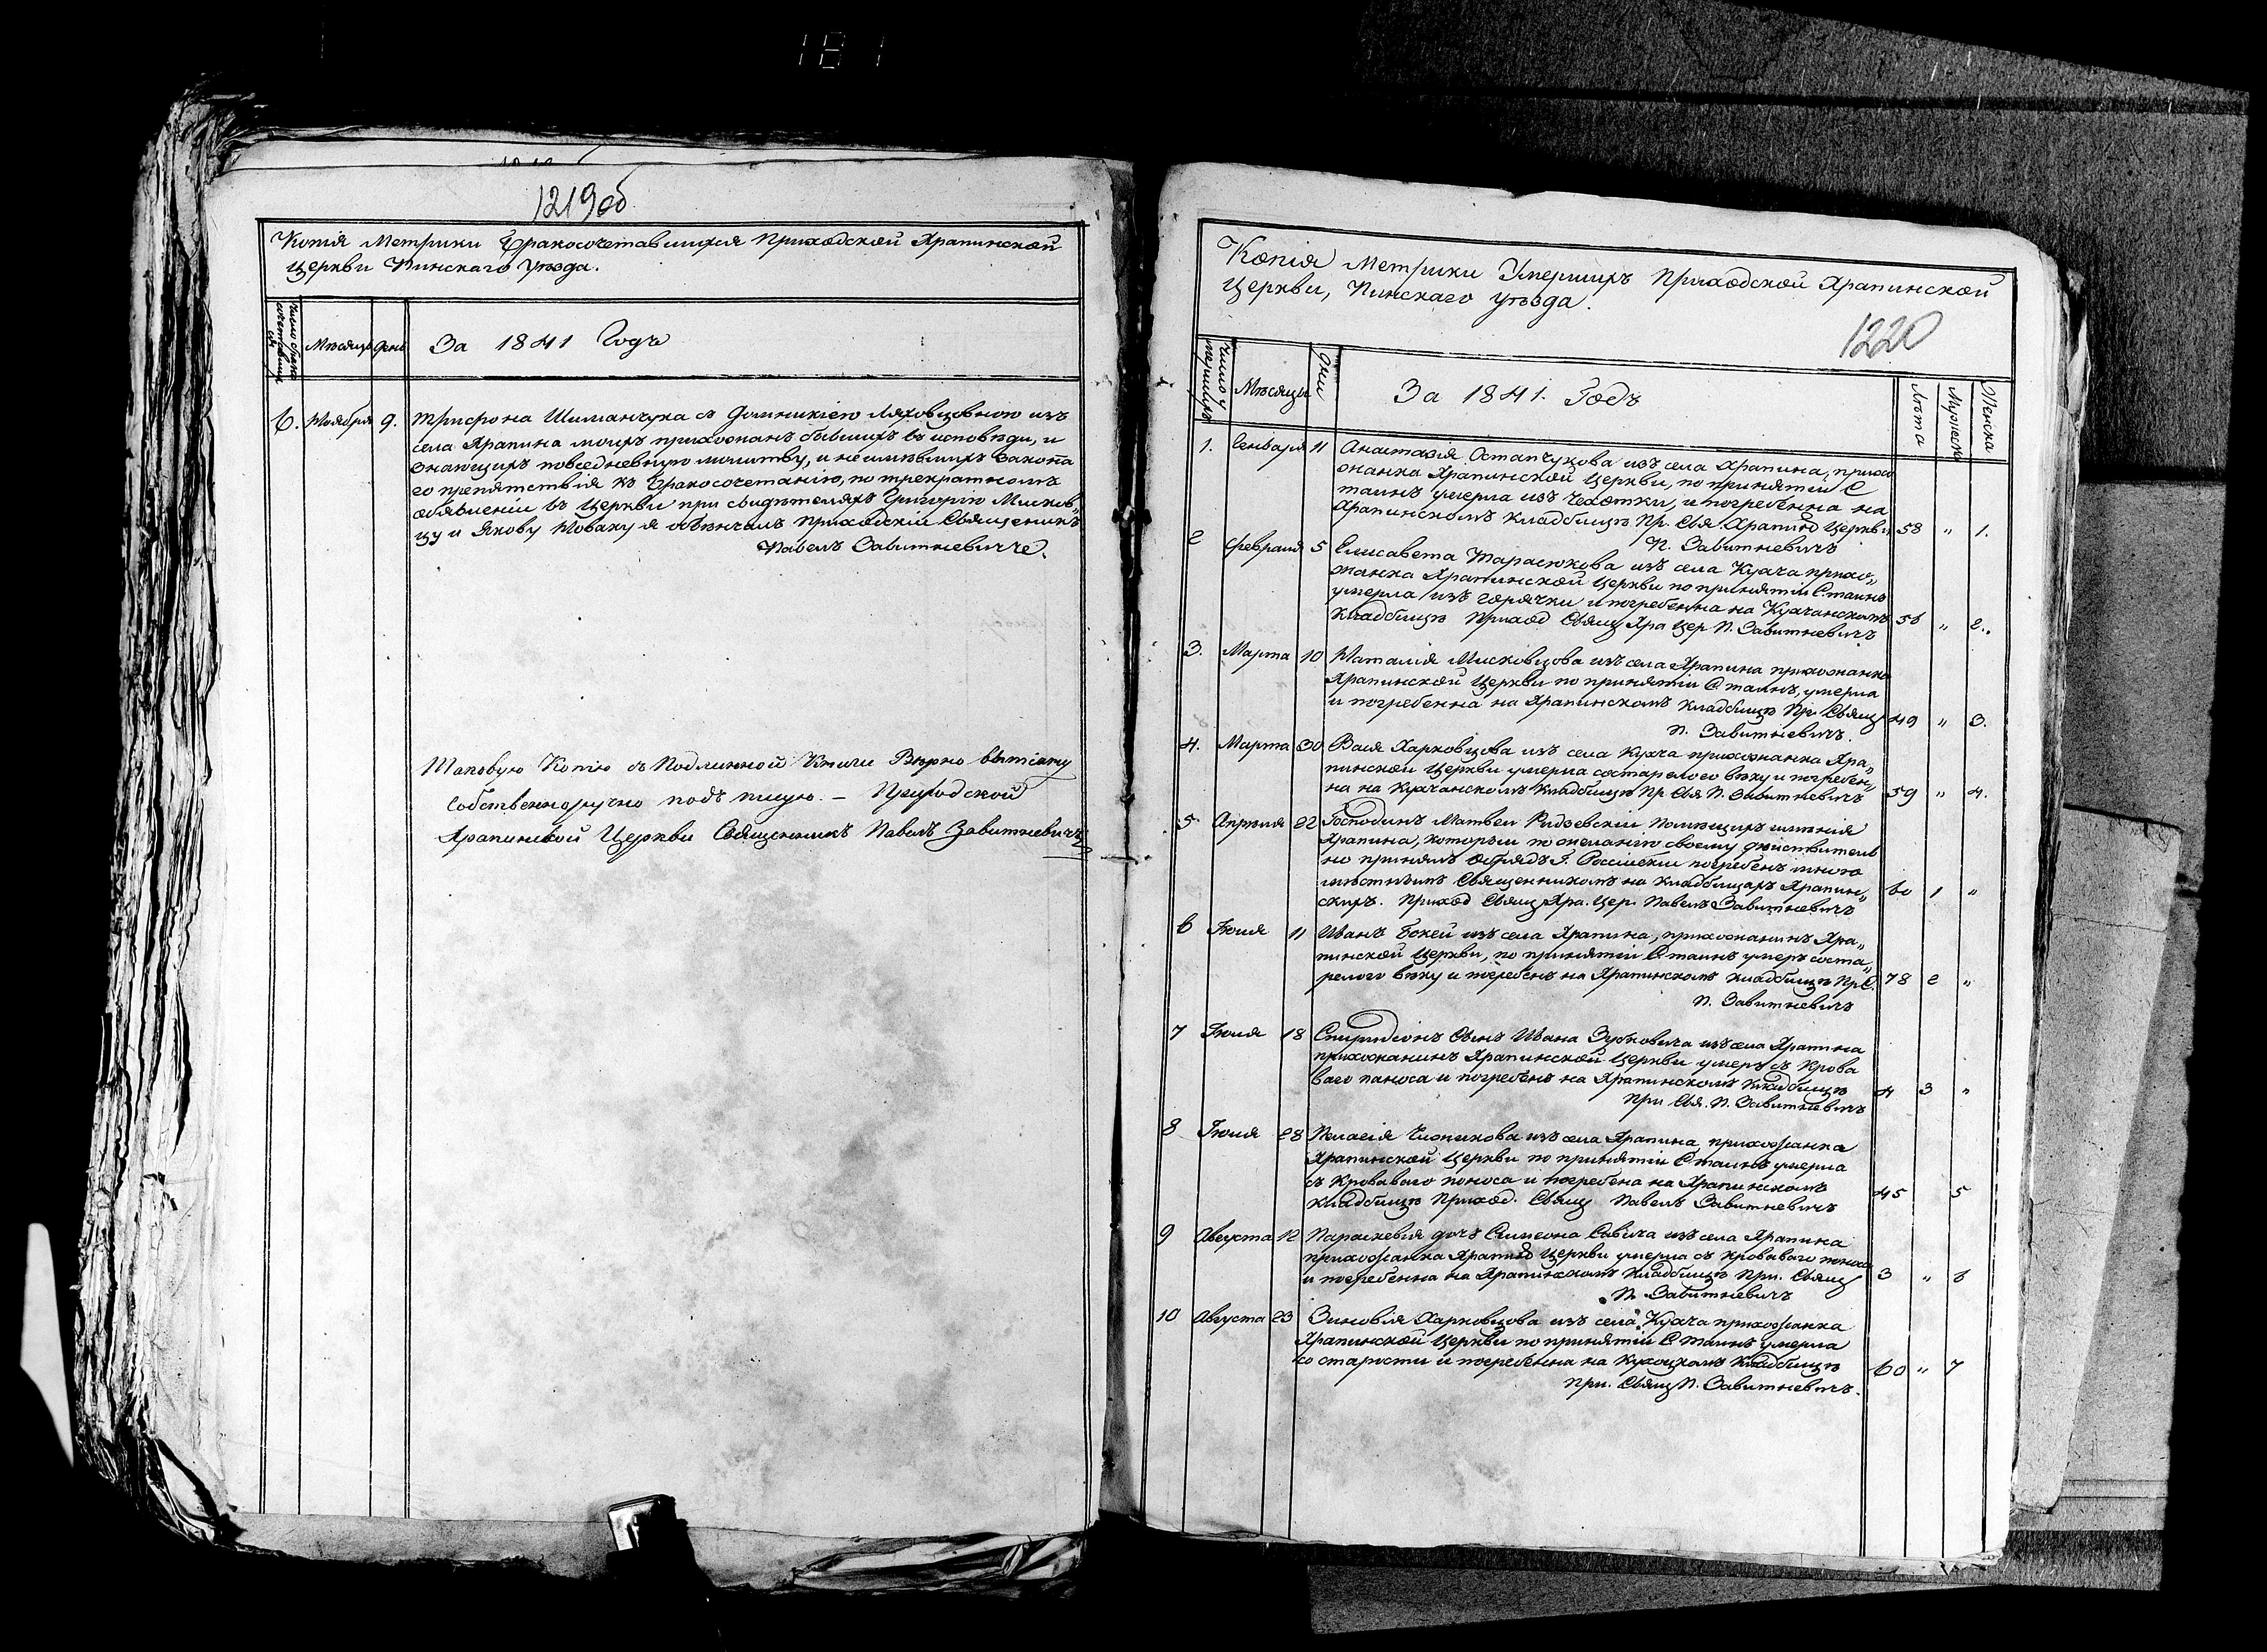 181
1219об
Копія Метрики Бракосочетавшихся Приходской Храпинской
Церкви Пинскаго Уѣзда.
Мѣсяцъ День За 1841 Годъ
6. Ноября 9. Трифона Шиманчука съ Домникіею Ляховцовною изъ
села Храпина моихъ прихожанъ бывшихъ въ исповѣди, и
знающихъ повседневную молитву, и неимѣвшихъ Закона
го препятствія къ Бракосочетанію, по трекратномъ
объявленіи въ Церкви при свидѣтеляхъ Григорію Мисков„
цу и Якову Новаку я обвѣнчалъ Приходскій Священникъ
Павелъ Завитневичъ.
Таковую Копію съ Подлинной Книги Вѣрно выписану
собственноручно подъписую. – Приходской
Храпинской Церкви Священникъ Павелъ Завитневичъ
Копія Метрики Умершихъ Приходской Храпинской
Церкви, Пинскаго уѣзда.
1220
Число умершихъ Мѣсяцы Дни За 1841. Годъ Лѣта Мужеска Женска
1. Генваря 11 Анастазія Остапчукова изъ села Храпина, прихо
жанка Храпинской Церкви, по принятіи С
таинъ умерла изъ Чехотки, и погребенна на
Храпинскомъ кладбищѣ Пр. Свя. Храпин Церкви 58 „ 1.
П. Завитневичъ
2 Февраля 5 Елисавета Тарасюкова изъ села Кухча прихо„
жанка Храпинской Церкви по принятіи С. таинъ
умерла изъ горячки и погребенна на Кухчанскомъ
кладбищѣ Приход Свящ Хра Цер П. Завитневичъ 56 „ 2.
3. Марта 10 Наталія Мисковцова изъ села Храпина прихожанка
Храпинской Церкви по принятіи С. таинъ, умерла
и погребенна на Храпинскомъ кладбищѣ Пр. Свящ 49 „ 3.
П. Завитневичъ.
4. Марта 30 Васа Харковцова изъ села Кухча прихожанка Хра„
пинской Церкви умерла состарелого вѣку и погребен„
на на Кухчанскомъ Кладбищѣ Пр Свя П. Завитневичъ 59 „ 4.
5 Апрѣля 22 Господинъ Матвеи Помѣщикъ имѣнія
Храпина, которыи по желанію своему дѣиствитель
но принялъ обрядъ Г. Россійскіи погребенъ мною
мѣстнымъ Священникомъ на Кладбищахъ Храпин„
скихъ. Приход Свящ Хра. Цер. Павелъ Завитневичъ 60 1 „
6 Іюля 11 Иванъ Бокей изъ села Храпина, прихожанинъ Хра„
пинской Церкви, по принятіи С таинъ умеръ соста„
релого вѣку и погребенъ на Храпинскомъ кладбищѣ Пр С. 78 2 „
П. Завитневичъ
7 Іюля 18 Спиридіонъ Сынъ Ивана Зубковича изъ села Храпина
прихожанинъ Храпинской Церкви умеръ съ Крова
ваго паноса и погребенъ на Храпинскомъ Кладбищѣ 4 3 „
При Свя. П. Завитневичъ
8 Іюля 28 Пелагія изъ села Храпина прихожанка
Храпинской Церкви по принятіи С таинъ умерла
съ Кроваваго поноса и погребена на Храпинскомъ
кладбищѣ Приход. Свящ Павелъ Завитневичъ 45 5
9 Августа 12 Параскевія дочъ Симеона Савича изъ села Храпина
прихожанка Храпин Церкви умерла съ кроваваго поноса
и погребенна на Храпинскомъ кладбищѣ При. Свящ 3 „ 6
П. Завитневичъ
10 Августа 23 Зиновія Харковцова изъ села Кухча прихожанка
Храпинской Церкви по принятіи С таинъ умерла
со старости и погребенна на Кухоцкомъ Кладбищѣ 60 „ 7
При. Свящ П. Завитневичъ.